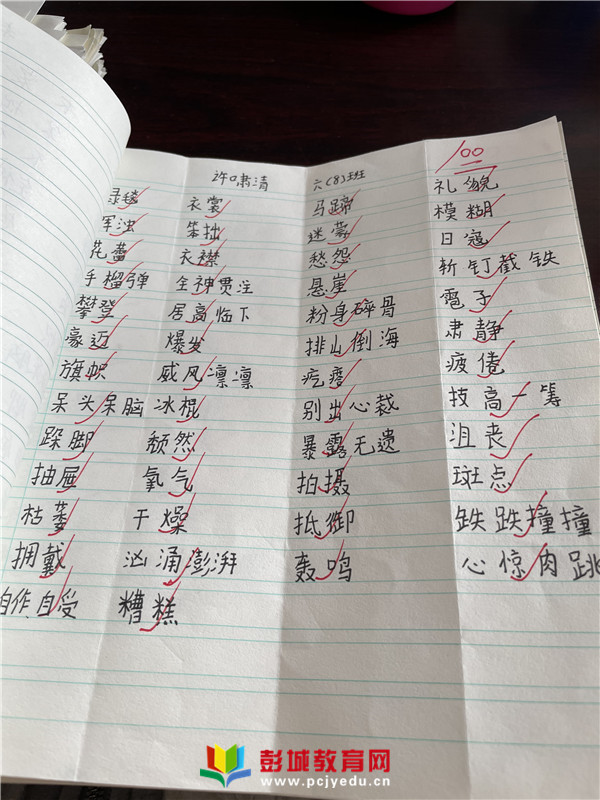 许啸清 六(8)班
100
绿毯
浑浊
花蕾
手榴弹
攀登
豪迈
旗帜
呆头呆脑
跺脚
抽屉
枯萎
拥戴
自作自受
衣裳
笨拙
衣襟
全神贯注
居高临下
爆发
威风凛凛
冰棍
颓然
氧气
干燥
汹涌澎湃
糟糕
马蹄
迷蒙
愁怨
悬崖
粉身碎骨
排山倒海
疙瘩
别出心裁
暴露无遗
拍摄
抵御
轰鸣
礼貌
模糊
日寇
斩钉截铁
電子
肃静
疲倦
技高一筹
沮丧
斑点
跌跌撞撞
心惊肉跳
彭城教育网
www.pcjyedu.cn